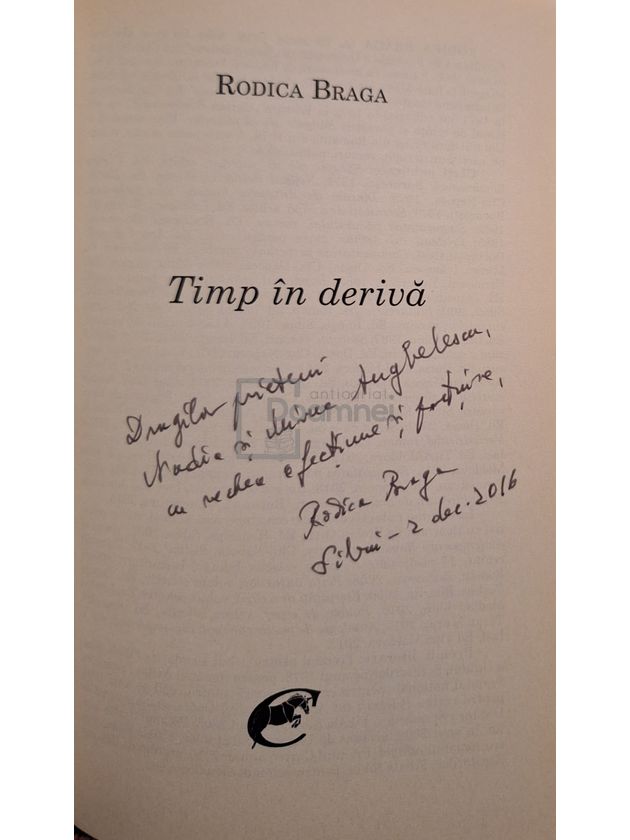 RODICA BRAGA
Timp în derivă
Dragilor prieteni
Nadia și Mircea Anghelescu,
cu vechea afecțiune și prețuire,
Rodica Braga
Sibiu – 2 dec. 2016
antic riat
Doamnei
C